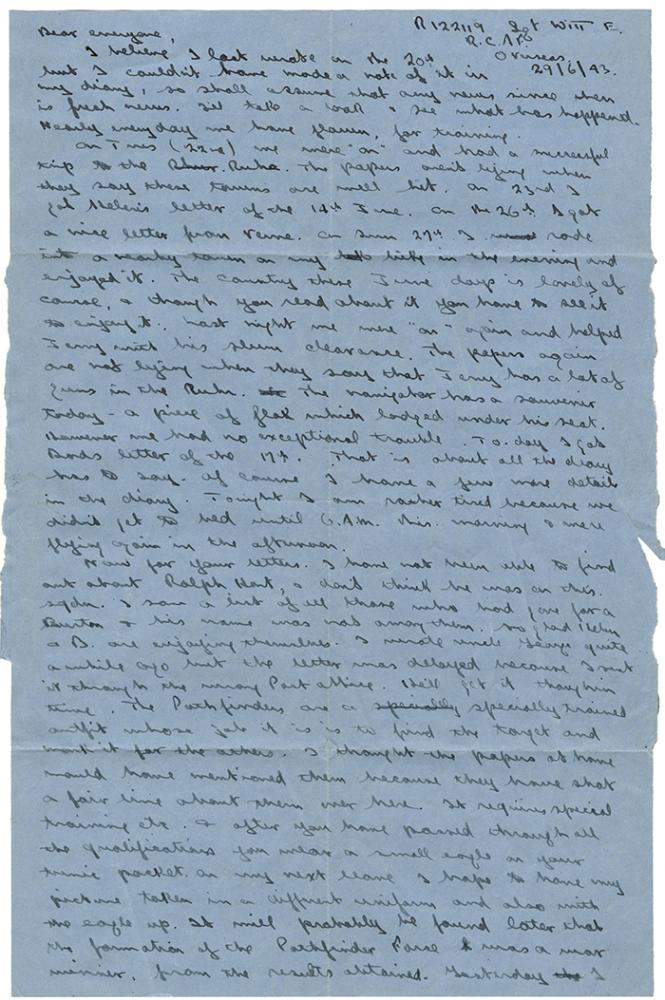 R122119 Sgt Witt F.
R.C.A.F.
Overseas,
29/6/43.
Dear everyone,
I believe I last wrote on the 20th
but I couldn't have made a note of it in
my diary, so shall assume that any news since then
is fresh news. I'll take a look & see what has happened.
Nearly everyday we have flown, for training.
On Tues (22nd) we were "on" and had a successful
trip to the Ruhr. The papers aren't lying when
they say these towns are well hit. On 23rd I
got Helen's letter of the 14th June. On the 26th I got
a nice letter from Verne. On Sun 27th I rode
into a nearby town on my bike in the evening and
enjoyed it. The country these June days is lovely of
course, & though you read about it you have to see it
to enjoy it. Last night we were "on" again and helped
Jerry with his slum clearance. The papers again
are not lying when they say that Jerry has a lot of
guns in the Ruhr. The navigator has a souvenir
today - a piece of flak which lodged under his seat.
However we had no exceptional trouble. To-day I got
Dad's letter of the 17th. That is about all the diary
has to say. Of course I have a few more details
in the diary. Tonight I am rather tired because we
didn't get to bed until 6 A.M. this morning & were
flying again in the afternoon.
Now for your letters. I have not been able to find
out about Ralph, & don't think he was on this
sqdn. I saw a list of all those who had gone for a
Burton & his name was not among them. So glad Helen
& B. are enjoying themselves. I wrote uncle George quite
a while ago but the letter was delayed because I sent
it through the wrong Post office. He'll get it though in
time. The Pathfinders are a specially specially trained
outfit whose job it is is to find the target and
mark it for the others. I thought the papers at home
would have mentioned them because they have shot
a fair line about them over here. It requires special
training etc. & after you have passed through all
the qualifications you wear a small eagle on your
tunic pocket. On my next leave I hope to have my
picture taken in a different uniform and also with
the eagle up. It will probably be found later that
the formation of the Pathfinder Force was a war
winner, from the results obtained. Yesterday I